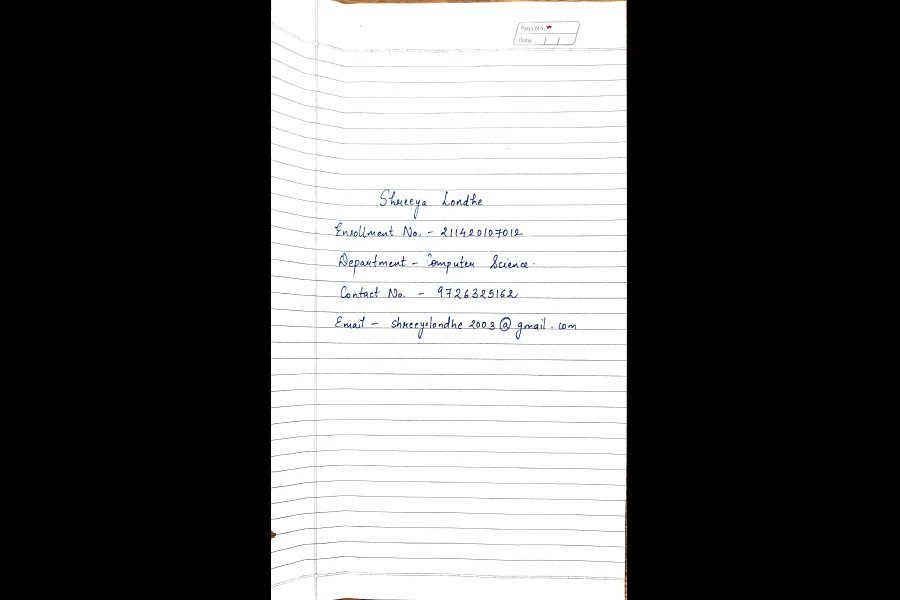 Page No.:
Date:
Shreeya Londhe
Enrollment No. - 211420107012
Department - Computer Science.
Contact No. - 9726325162
Email - shreeyalondhe2003@gmail.com